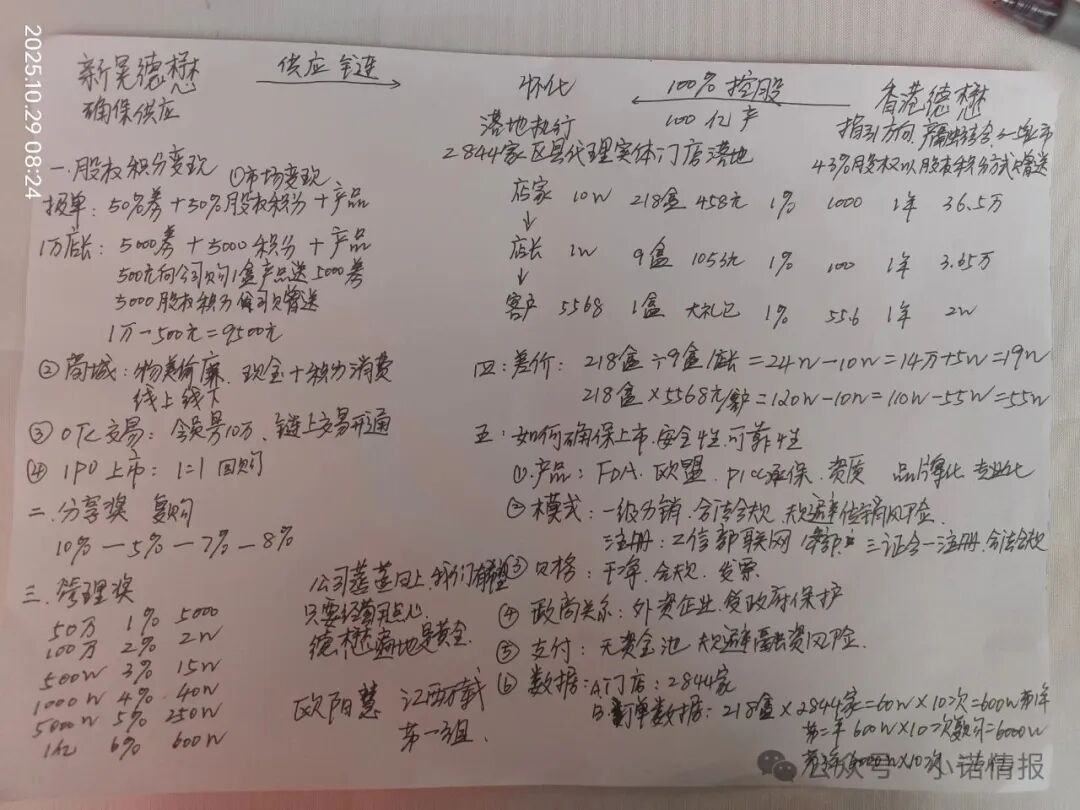 2025.10.29 08:24
新昊德懋 供应链 怀化 100%控股 香港德懋
确保供应 落地执行 100亿产
2844家区县代理实体门店落地
43%股权以股权积分方式赠送
一.股权积分变现 ①市场变现
报单：50%券+50%股权积分+产品
1万店长：5000券+5000积分+产品
500元向公司购1盒产品送5000券
5000股权积分公司赠送
1万-500元=9500元
②商城：物美价廉、现金+积分消费
线上线下
③OTC交易：会员号10万、链上交易开通
④IPO上市：1=1回购
二.分享奖 复购
10%-5%-7%-8%
三.管理奖
50万 1% 5000
100万 2% 2W
500W 3% 15W
1000W 4% 40W
5000W 5% 250W
1亿 6% 600W
公司蒸蒸日上，我们有梦
只要经营用点心
德懋遍地是黄金
欧阳慧 江西
第一组.
店家 10W 218盒 458元 1% 1000 1年 36.5万
店长 1W 9盒 1053元 1% 100 1年 3.65万
客户 5568 1盒 大礼包 1% 55.6 1年 2W
四：差价：218盒÷9盒/店长=24W-10W=14万+5W=19W
218盒×5568元/客户=120W-10W=110W-55W=55W
五：如何确保上市.安全性.可靠性
①.产品：FDA、欧盟.PICC承保.资质 品牌化 专业化
②模式：一级分销、合法合规 规避传销风险.
注册：工信部联网 三证合一注册.合法合规
③资格：干净、合规、发票
④政商关系：外资企业、受政府保护
⑤支付：无资金池 规避融资风险.
⑥数据：A门店：2844家
B订单数据：218盒×2844家=60W×10次=600W第1年
第二年600W×10次复购=6000W
第三年6000W×10次
公众号·小诺情报